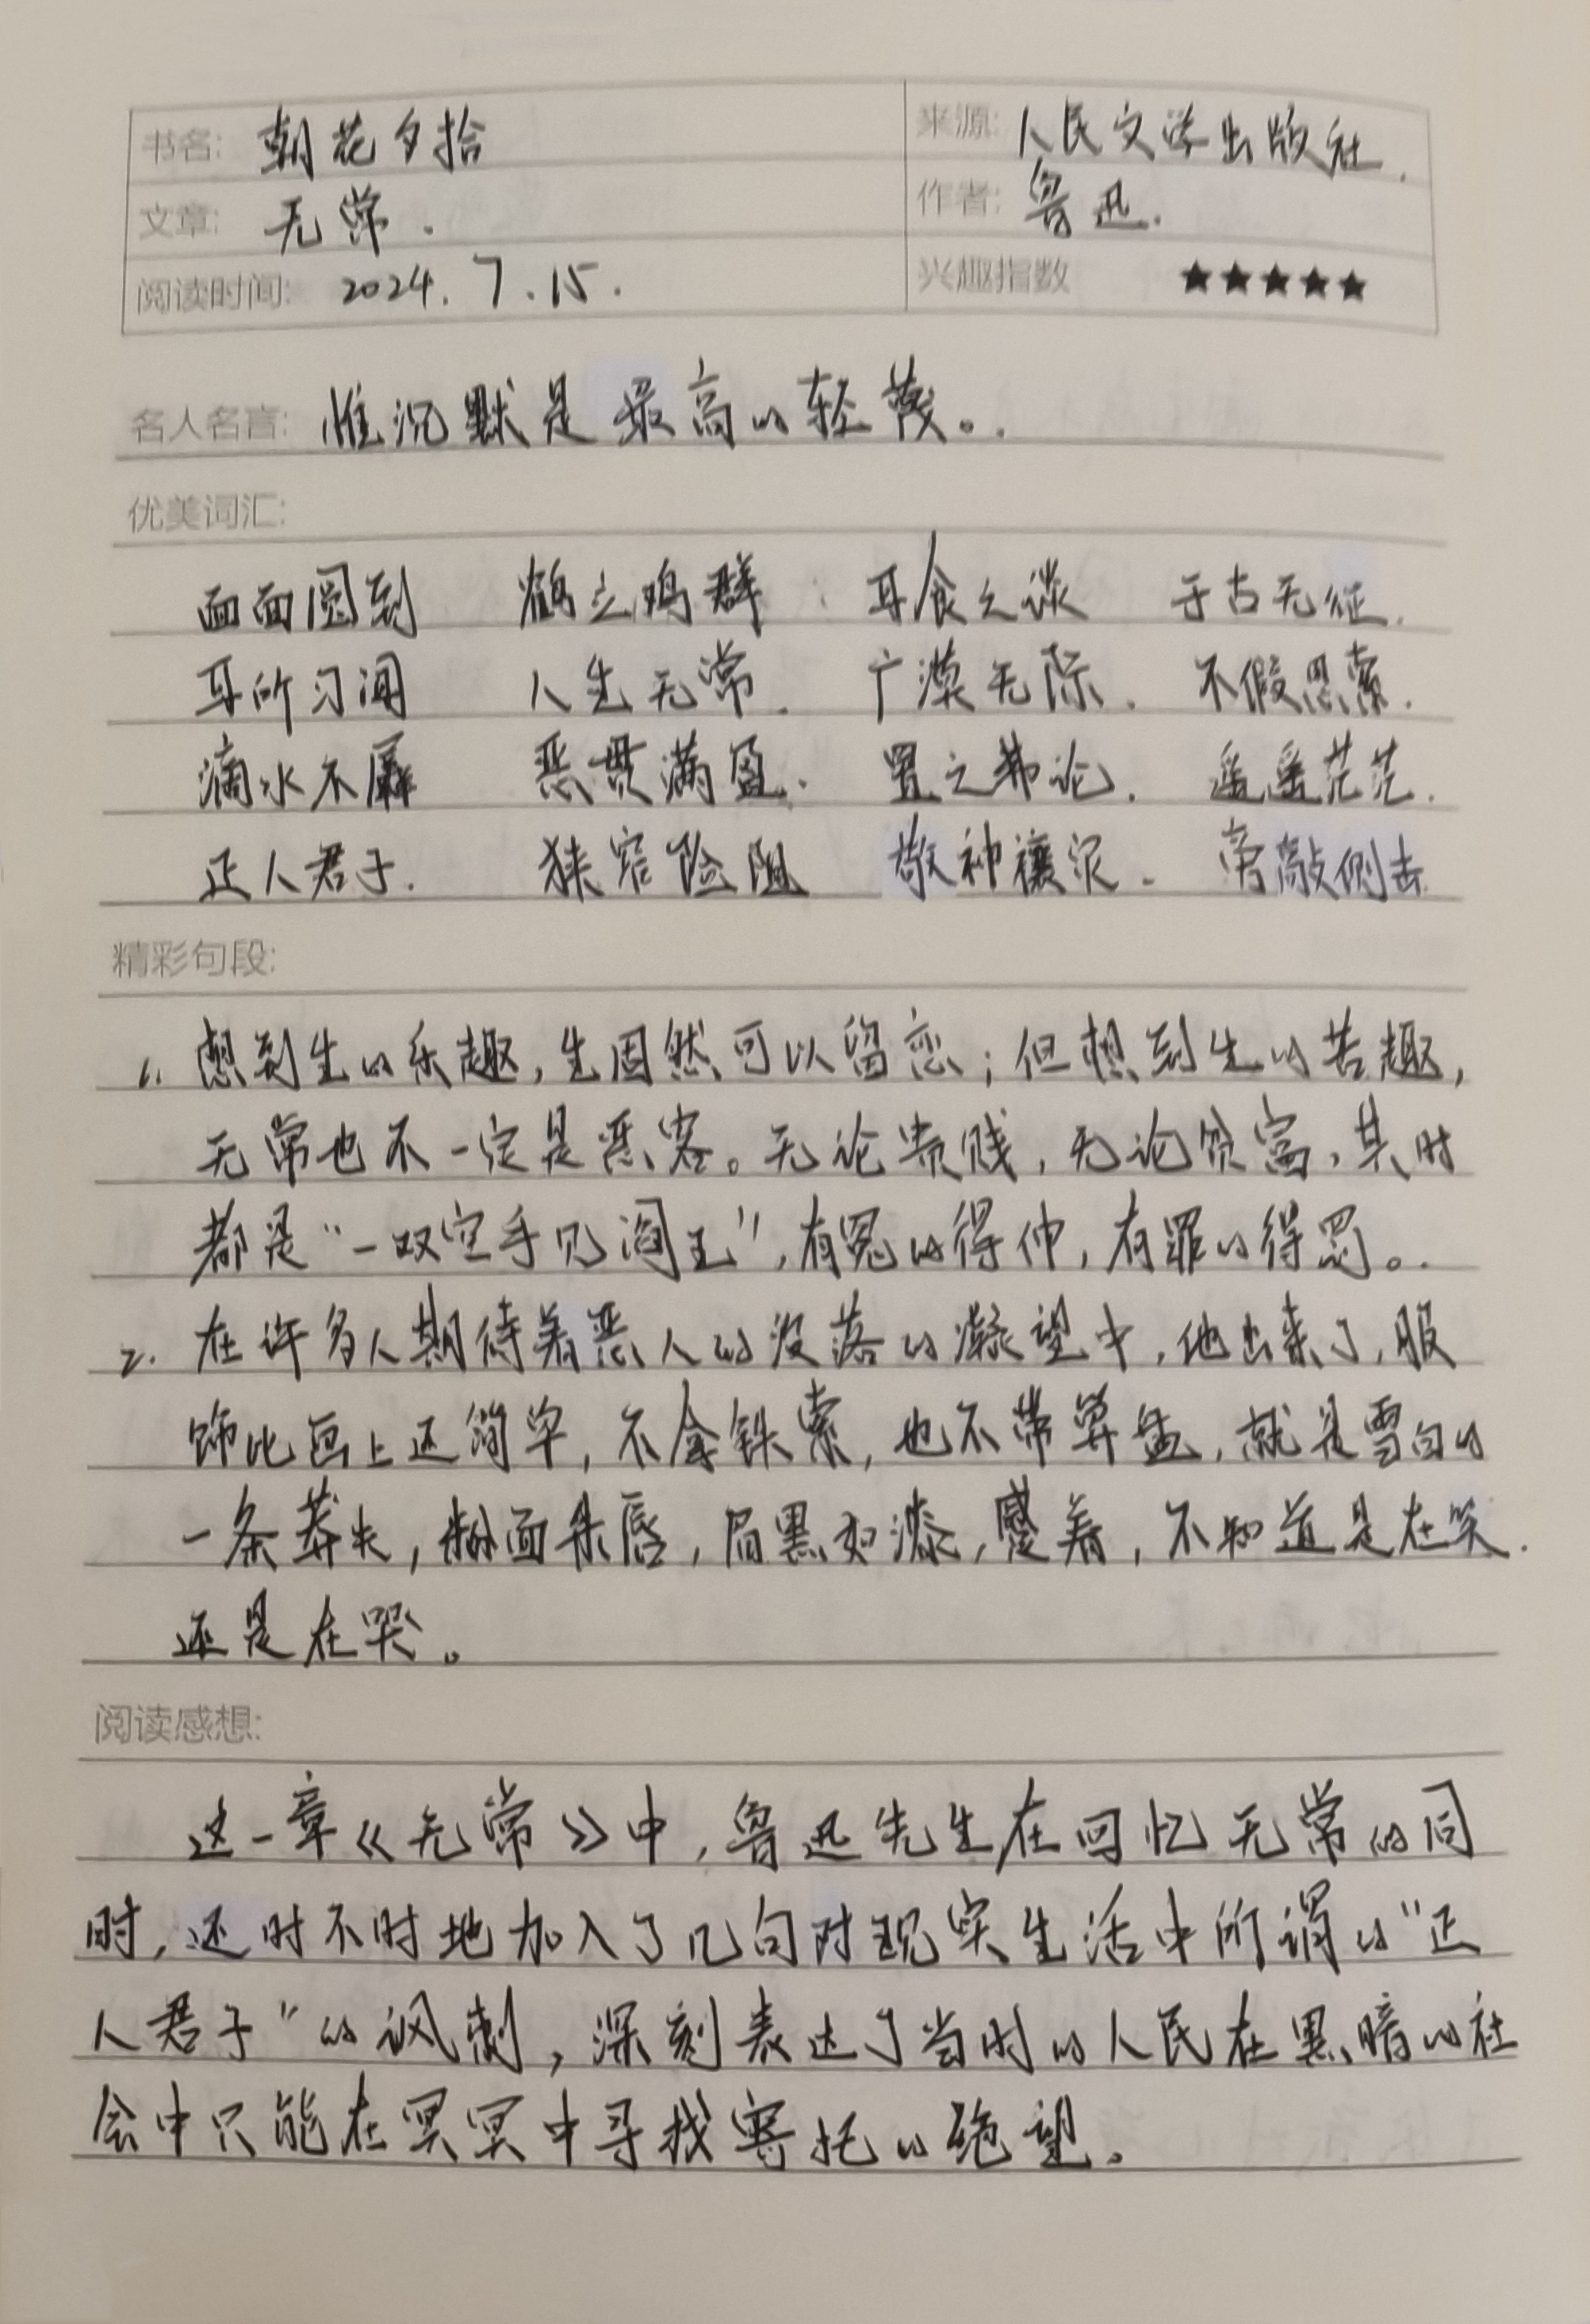 书名: 朝花夕拾 来源: 人民文学出版社.
文章: 无常. 作者: 鲁迅.
阅读时间: 2024.7.15. 兴趣指数 ★★★★★
名人名言: 惟沉默是最高的轻蔑。.
优美词汇:
面面圆到 鹤立鸡群 耳食之谈 于古无征.
耳所习闻 人生无常. 广漠无际. 不假思索.
滴水不羼 恶贯满盈. 置之弗论. 遥遥茫茫.
正人君子. 狭窄险阻 敬神禳灾. 旁敲侧击
精彩句段:
1. 想到生的乐趣,生固然可以留恋;但想到生的苦趣,
无常也不一定是恶客。无论贵贱,无论贫富,其时
都是“一双空手见阎王”,有冤的得伸,有罪的得罚。.
2. 在许多人期待着恶人的没落的凝望中,他出来了,服
饰比画上还简单,不拿铁索,也不带算盘,就是雪白的
一条莽夫,粉面朱唇,眉黑如漆,蹙着,不知道是在笑.
还是在哭。
阅读感想:
这一章《无常》中,鲁迅先生在回忆无常的同
时,还时不时地加入了几句对现实生活中所谓的“正
人君子”的讽刺,深刻表达了当时的人民在黑暗的社
会中只能在冥冥中寻找寄托的绝望。